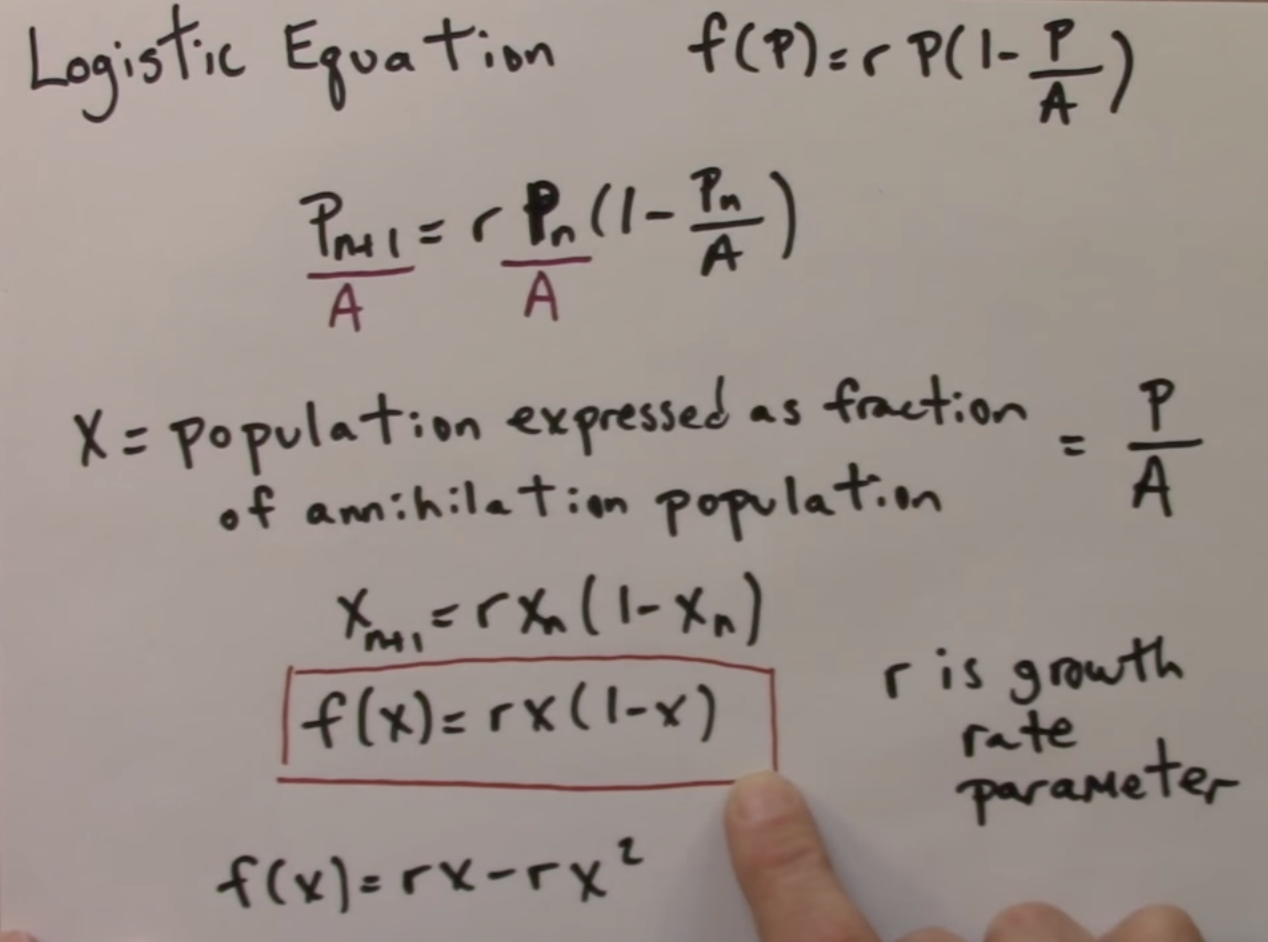 Logistic Equation f(P)=rP(1-P/A)
P_{n+1}/A = r P_n/A (1-P_n/A)
X = population expressed as fraction = P/A
of annihilation population
X_{n+1} = rX_n(1-X_n)
f(x)=rx(1-x)
r is growth
rate
parameter
f(x)=rx-rx²